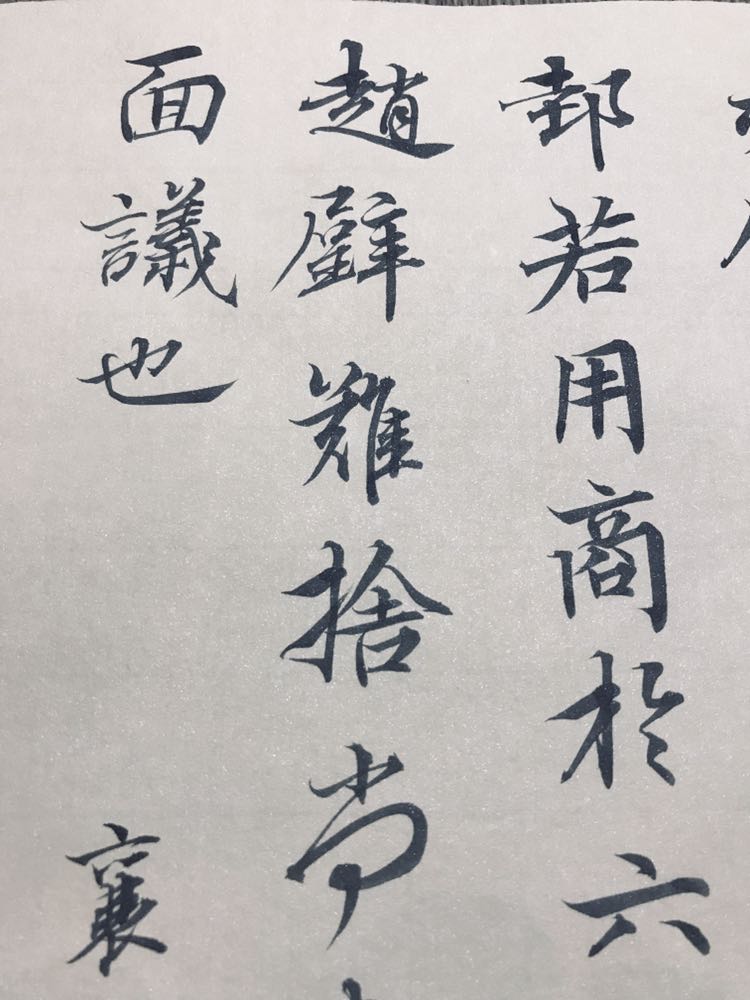 邽若用商於六
趙璧難捨尚
面議也 襄